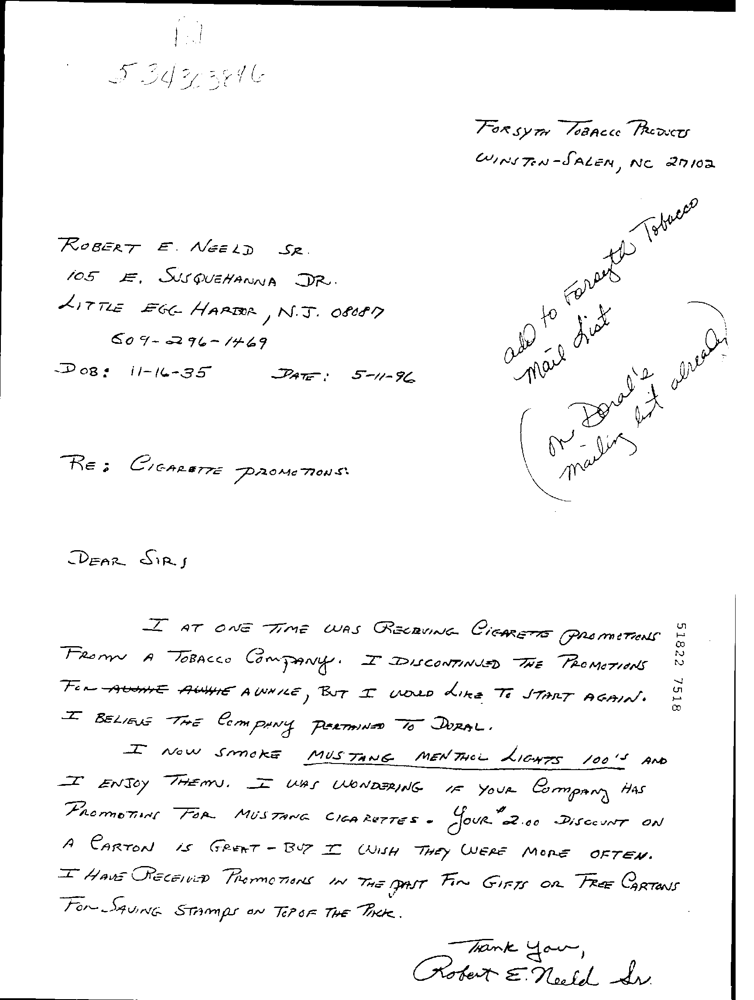 534303846
FORSYTH TOBACCO PRODUCTS
WINSTON-SALEM, NC 27102
ROBERT E. NEELD SR.
105 E. SUSQUEHANNA DR.
LITTLE EGG HARBOR, N.J. 08087
609-296-1469
DOB: 11-16-35 DATE: 5-11-96
add to Forsyth Tobacco
Mail List
(on Doral's
mailing list already)
RE: CIGARETTE PROMOTIONS.
DEAR SIR,
I AT ONE TIME WAS RECEIVING CIGARETTE PROMOTIONS
FROM A TOBACCO COMPANY. I DISCONTINUED THE PROMOTIONS
FOR AWHILE, BUT I WOULD LIKE TO START AGAIN.
I BELIEVE THE COMPANY PERTAINED TO DORAL.
I NOW SMOKE MUSTANG MENTHOL LIGHTS 100'S AND
I ENJOY THEM. I WAS WONDERING IF YOUR COMPANY HAS
PROMOTIONS FOR MUSTANG CIGARETTES. YOUR $2.00 DISCOUNT ON
A CARTON IS GREAT - BUT I WISH THEY WERE MORE OFTEN.
I HAVE RECEIVED PROMOTIONS IN THE PAST FOR GIFTS OR FREE CARTONS
FOR SAVING STAMPS ON TOP OF THE PACK.
Thank you,
Robert E. Neeld Sr.
51822 7518